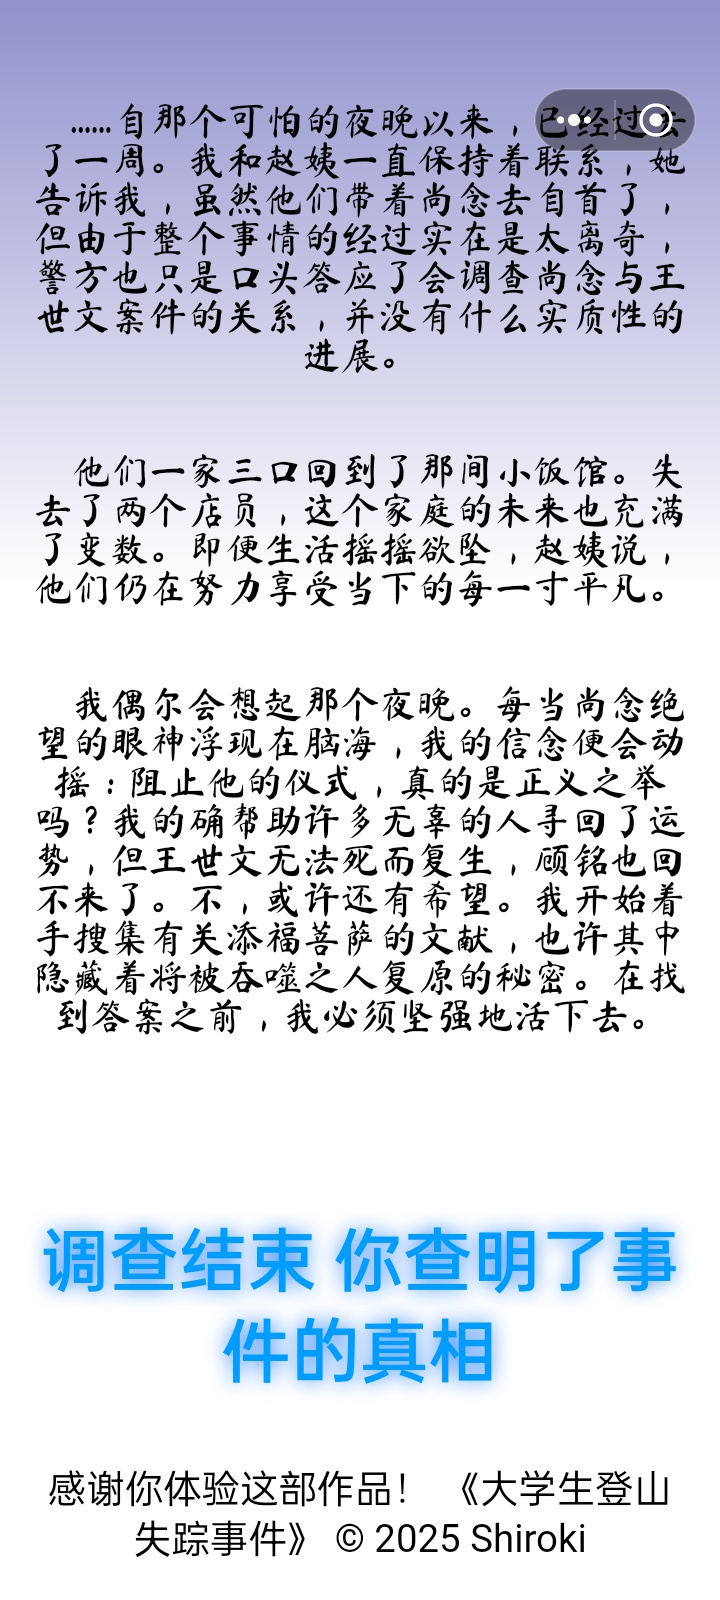 ……自那个可怕的夜晚以来，已经过去
了一周。我和赵姨一直保持着联系，她
告诉我，虽然他们带着尚念去自首了，
但由于整个事情的经过实在是太离奇，
警方也只是口头答应了会调查尚念与王
世文案件的关系，并没有什么实质性的
进展。
他们一家三口回到了那间小饭馆。失
去了两个店员，这个家庭的未来也充满
了变数。即便生活摇摇欲坠，赵姨说，
他们仍在努力享受当下的每一寸平凡。
我偶尔会想起那个夜晚。每当尚念绝
望的眼神浮现在脑海，我的信念便会动
摇：阻止他的仪式，真的是正义之举
吗？我的确帮助许多无辜的人寻回了运
势，但王世文无法死而复生，顾铭也回
不来了。不，或许还有希望。我开始着
手搜集有关添福菩萨的文献，也许其中
隐藏着将被吞噬之人复原的秘密。在找
到答案之前，我必须坚强地活下去。
调查结束 你查明了事
件的真相
感谢你体验这部作品！ 《大学生登山
失踪事件》 © 2025 Shiroki